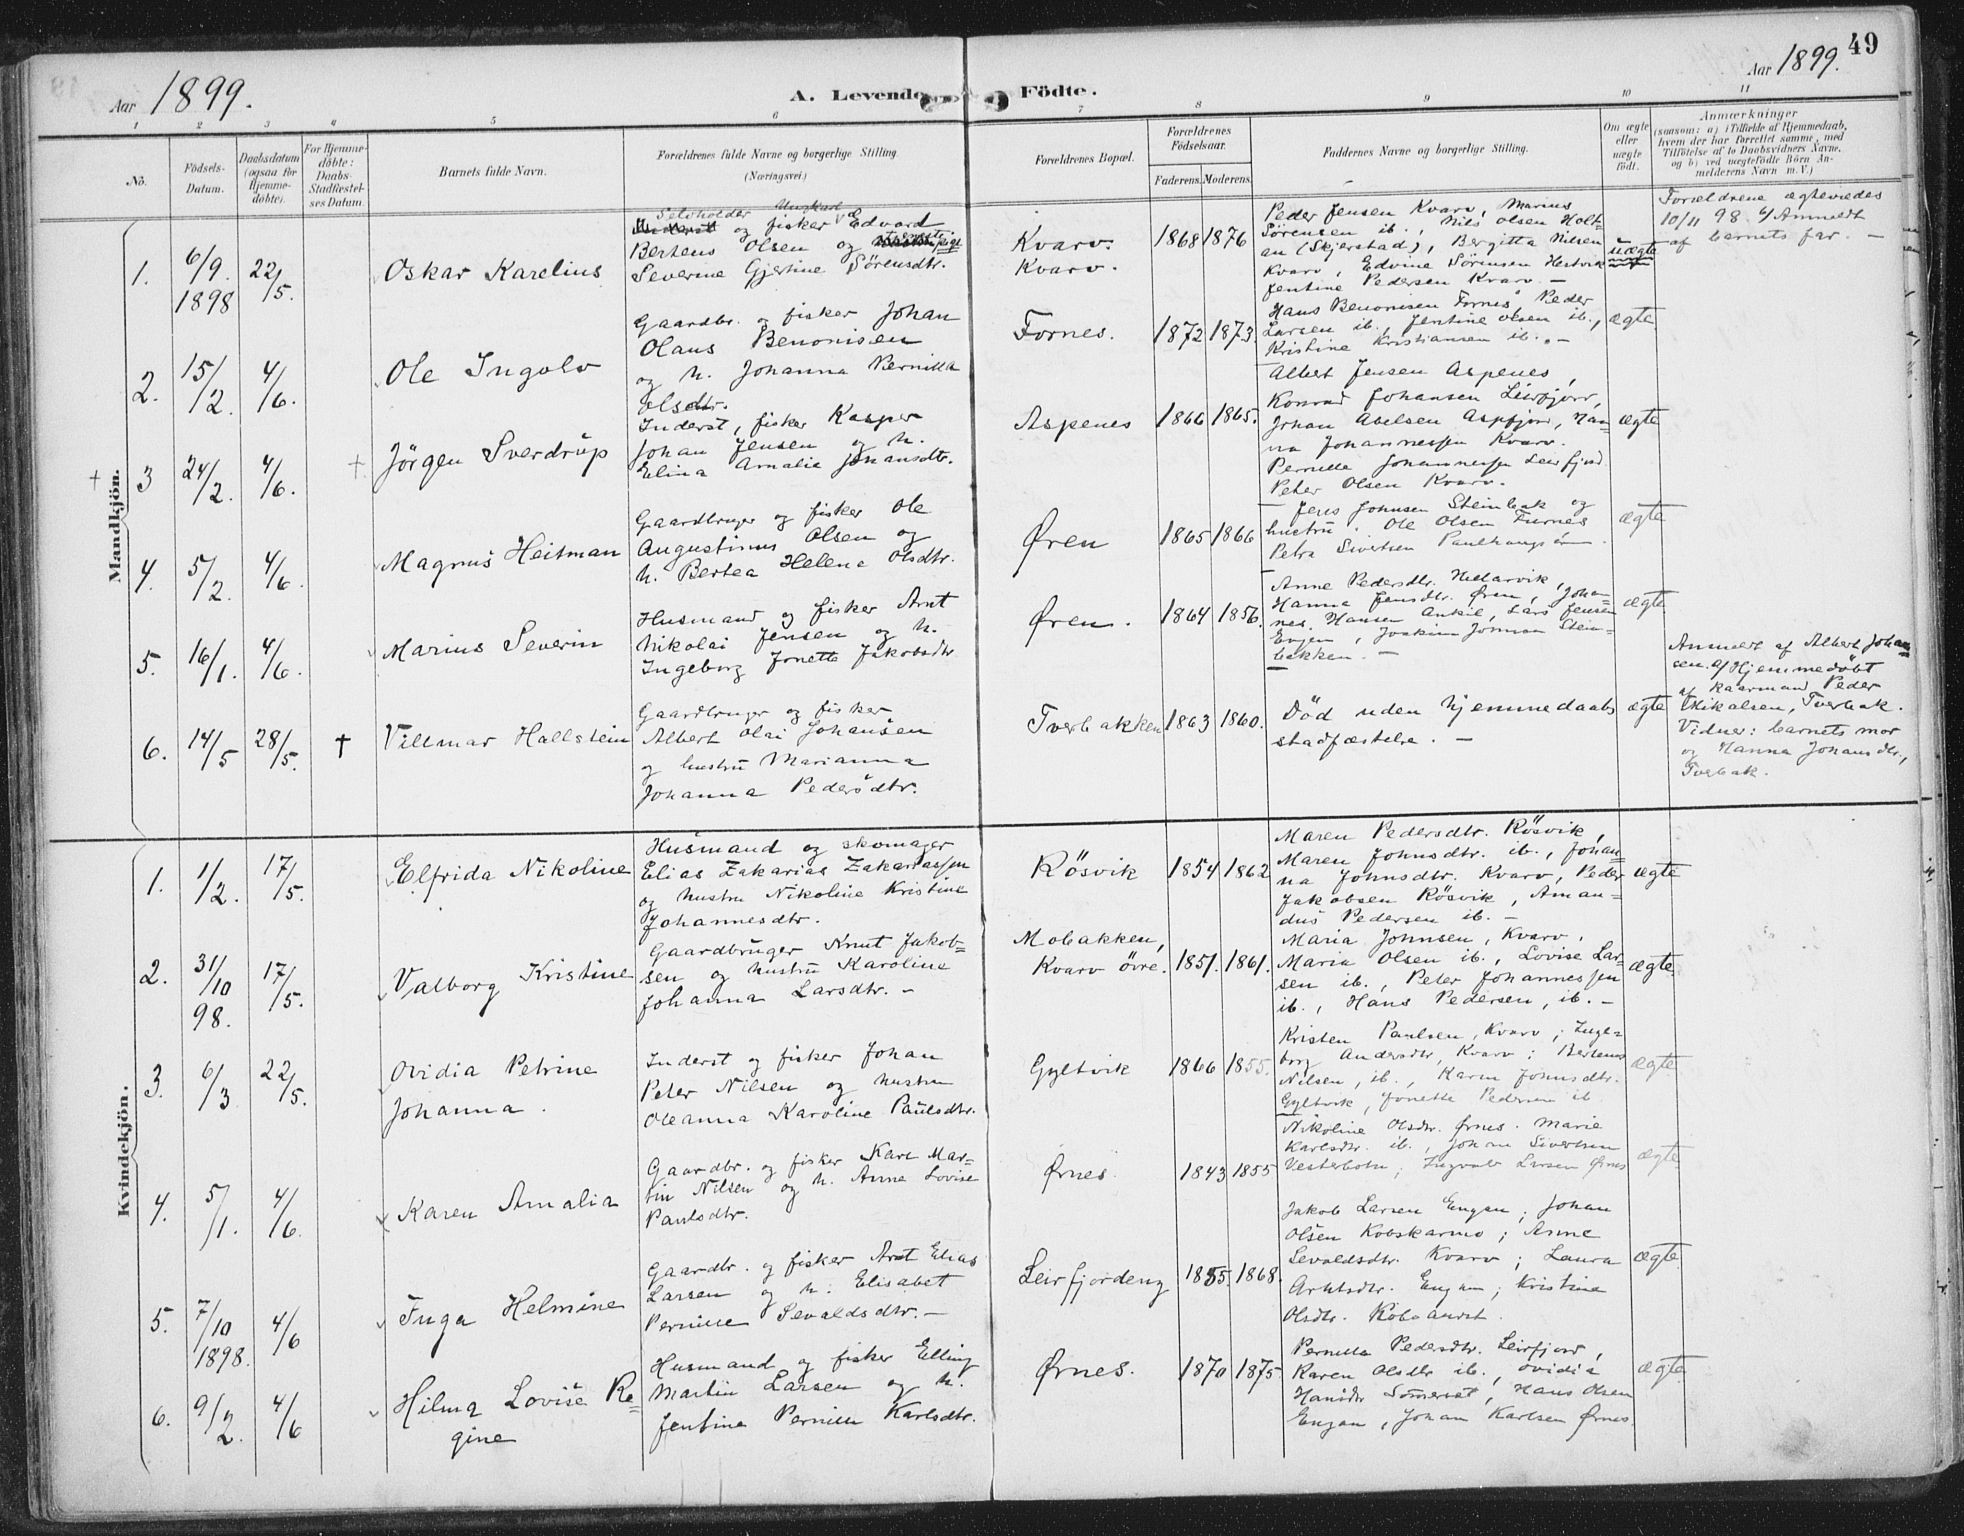 49
Aar 1899.
A. Levende Födte.
Aar 1899.
1 2 3 4 5 6 7 8 9 10 11
No.
Födsels-
Datum.
Daabsdatum
(ogsaa for
Hjemme-
döbte).
For Hjemme-
döbte:
Daabs-
Stadfæstel-
ses Datum.
Barnets fulde Navn.
Forældrenes fulde Navne og borgerlige Stilling.
(Næringsvei.)
Forældrenes Bopæl.
Forældrenes
Födselsaar.
Faderens. Moderens.
Faddernes Navne og borgerlige Stilling.
Om ægte
eller
uægte
födt.
Anmærkninger
(saasom: a) i Tilfælde af Hjemmedaab,
hvem der har forrettet samme, med
Tilföielse af to Daabsvidners Navne,
og b) ved uægtefödte Börn An-
melderens Navn m. V.)
Mandkjön.
1.
6/9.
1898
22/5.
Oskar Karelius
Selvholder Ungkarl
og fisker Edvard
Bertens Olsen og
Severine Gjertine Sörensdtr.
Kvarv.
Kvarv.
1868 1876
Peder Jensen Kvarv, Marius
Sörensen ib., Nils Olsen Holt-
an (Skjerstad), Bergitta Nilsen
Kvarv, Edvine Sörensen Hestvik
Jentine Pedersen Kvarv. –
uægte
Forældrene ægteviedes
10/11 98. Anmeldt
af barnets far. –
2.
15/2.
4/6.
Ole Ingolv
Gaardbr. og fisker Johan
Olaus Benonisen
og h. Johanna Pernilla
Olsdtr.
Fornes.
1872 1873.
Hans Benonisen Fornes, Peder
Larsen ib., Jentine Olsen ib.,
Kristine Kristiansen ib. –
ægte
3
24/2.
4/6.
Jörgen Sverdrup
Inderst, fisker Kasper
Johan Jensen og h.
Elina Amalia Johansdtr.
Aspenes
1866 1865.
Albert Jensen Aspenes,
Konrad Johansen Leirfjorr,
Johan Abelsen Aspfjor, Han-
na Johannessen Kvarv.
Pernille Johannessen Leirfjord
Peter Olsen Kvarv.
ægte
4.
5/2.
4/6.
Magnus Heitman
Gaardbruger og fisker Ole
Augustinus Olsen og
h. Bertea Helena Olsdtr.
Øren
1865 1866
Jens Johnsen Steinbak og
hustru. Ole Olsen Furnes
Petra Sivertsen
ægte
5.
16/1.
4/6.
Marius Severin
Husmand og fisker Arnt
Nikolai Jensen og h.
Ingeborg Jonette Jakobsdtr
Øren.
1864 1856.
Anne Pedersdtr.
Hanna Jensdtr. Øren, Johan-
nes Hansen Ankil, Lars Jensen
Engen, Joakim Johnsen Stein-
bakken. –
ægte
6.
14/5
28/5.
†
Villmar Hallstein
Gaardbruger og fisker
Albert Olai Johansen
og hustru Marianna
Johanna Pedersdtr.
Tverbakken
1863 1860.
Död uden hjemmedaabs
stadfæstelse. –
ægte
Anmeldt af Albert Johan-
sen. Hjemmedöbt
af kaarmand Peder
Mikalsen, Tverbak.
Vidner: barnets mor
og Hanna Johansdtr,
Tverbak.
Kvindekjön.
1.
1/2.
17/5.
Elfrida Nikoline
Husmand og skomager
Elias Zakarias Zakariassen
og hustru Nikoline Kristine
Johannesdtr.
Rösvik
1854 1862
Maren Pedersdtr. Rösvik,
Maren Johnsdtr. ib., Johan-
na Johnsdtr. Kvarv, Peder
Jakobsen Rösvik, Aman-
dus Pedersen ib. –
ægte
2.
31/10
98.
17/5.
Valborg Kristine
Gaardbruger Knut Jakob-
sen og hustru Karoline
Johanna Larsdtr. –
Mobakken,
Kvarv övre.
1851. 1861.
Maria Johnsen, Kvarv,
Maria Olsen ib., Lovise Lar-
sen ib., Peter Johannessen
ib., Hans Pedersen, ib. –
ægte
3.
6/3
22/5.
Ovidia Petrine
Johanna.
Inderst og fisker Johan
Peter Nilsen og hustru
Oleanna Karoline Paulsdtr.
Gyltvik
1866 1855.
Kristen Paulsen, Kvarv; Inge-
borg Andersdtr, Kvarv; Bertens
Nilsen, ib., Karen Johnsdtr.
Gyltvik, Jonette Pedersen ib
ægte
4.
5/1.
4/6.
Karen Amalia
Gaardbr. og fisker Karl Mar-
tin Nilsen og h. Anne Lovise
Paulsdtr.
Ørnes.
1843 1855
Nikoline Olsdtr. Ørnes. Marie
Karlsdtr. ib., Johan Sivertsen
Vesterbotn; Ingvald Larsen Ørnes
ægte
5.
7/10
1898.
4/6
Inga Helmine
Gaardbr. og fisker Arnt Elias
Larsen og h. Elisabet
Pernille Sevaldsdtr. –
Leirfjorden
1855. 1868.
Jakob Larsen Engan; Johan
Olsen Kobskarmo; Anne
Sevaldsdtr. Kvarv; Laura
Engan; Kristina
Olsdtr.
ægte
6.
9/2.
4/6
Hilma Lovise Re-
gine
Husmand og fisker Elling
Martin Larsen og h.
Jentine Pernille Karlsdtr.
Ørnes.
1870 1875
Pernilla Pedersdtr. Leirfjord,
Karen Olsdtr ib., Ovidia
Hansdtr Sommerset, Hans Olsen
Engan, Johan Karlsen Ørnes
ægte